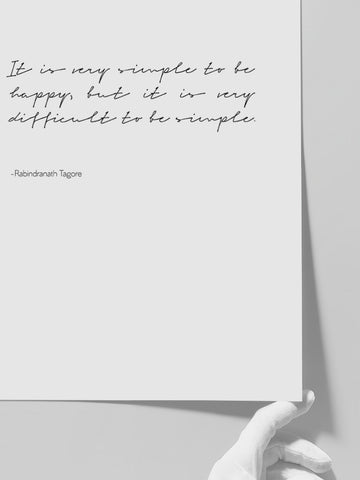 It is very simple to be
happy, but it is very
difficult to be simple.
-Rabindranath Tagore